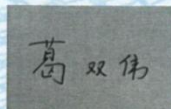 葛双伟